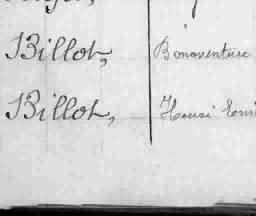 Billot, Bonaventure
Billot, Henri